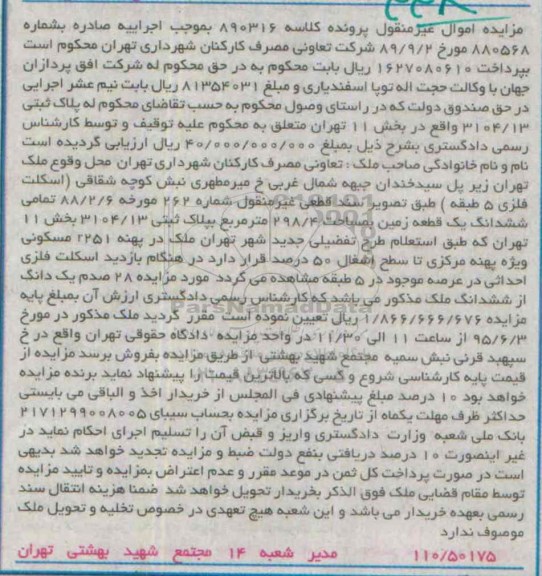 مزایده اموال غیرمنقول پرونده کلاسه ۸۹۰۳۱۶ بموجب اجراییه صادره بشماره
۸۸۰۵۶۸ مورخ ۸۹/۹/۲ شرکت تعاونی مصرف کارکنان شهرداری تهران محکوم است
بپرداخت ۱۶۲۷۰۸۰۶۱۰ ریال بابت محکوم به در حق محکوم له شرکت افق پردازان
جهان با وکالت حجت اله توپا اسفندیاری و مبلغ ۸۱۳۵۴۰۳۱ ریال بابت نیم عشر اجرایی
در حق صندوق دولت که در راستای وصول محکوم به حسب تقاضای محکوم له پلاک ثبتی
۳۱۰۴/۱۳ واقع در بخش ۱۱ تهران متعلق به محکوم علیه توقیف و توسط کارشناس
رسمی دادگستری بشرح ذیل بمبلغ ۴۰/۰۰۰/۰۰۰/۰۰۰ ریال ارزیابی گردیده است
نام و نام خانوادگی صاحب ملک : تعاونی مصرف کارکنان شهرداری تهران محل وقوع ملک
تهران زیر پل سیدخندان جبهه شمال غربی خ میرمطهری نبش کوچه شقاقی (اسکلت
فلزی ۵ طبقه ) طبق تصویر سند قطعی غیرمنقول شماره ۲۶۲ مورخه ۸۸/۲/۶ تمامی
ششدانگ یک قطعه زمین بمساحت ۲۹۸/۴ مترمربع بپلاک ثبتی ۳۱۰۴/۱۳ بخش ۱۱
تهران که طبق استعلام طرح تفضیلی جدید شهر تهران ملک در پهنه r۲۵۱ مسکونی
ویژه پهنه مرکزی تا سطح اشغال ۵۰ درصد قرار دارد در هنگام بازدید اسکلت فلزی
احداثی در عرصه موجود در ۵ طبقه مشاهده می گردد مورد مزایده ۲۸ صدم یک دانگ
از ششدانگ ملک مذکور می باشد که کارشناس رسمی دادگستری ارزش آن بمبلغ پایه
مزایده ۱/۸۶۶/۶۶۶/۶۷۶ ریال تعیین نموده است مقرر گردید ملک مذکور در مورخ
۹۵/۶/۳ از ساعت ۱۱ الی ۱۱/۳۰ در واحد مزایده دادگاه حقوقی تهران واقع در خ
سپهبد قرنی نبش سمیه مجتمع شهید بهشتی از طریق مزایده بفروش برسد مزایده از
قیمت پایه کارشناسی شروع و کسی که بالاترین قیمت را پیشنهاد نماید برنده مزایده
خواهد بود ۱۰ درصد مبلغ پیشنهادی فی المجلس از خریدار اخذ و الباقی می بایستی
حداکثر ظرف مهلت یکماه از تاریخ برگزاری مزایده بحساب سیبای ۲۱۷۱۲۹۹۰۰۸۰۰۵
بانک ملی شعبه وزارت دادگستری واریز و قبض آن را تسلیم اجرای احکام نماید در
غیر اینصورت ۱۰ درصد دریافتی بنفع دولت ضبط و مزایده تجدید خواهد شد بدیهی
است در صورت پرداخت کل ثمن در موعد مقرر و عدم اعتراض بمزایده و تایید مزایده
توسط مقام قضایی ملک فوق الذکر بخریدار تحویل خواهد شد ضمنا هزینه انتقال سند
رسمی بعهده خریدار می باشد و این شعبه هیچ تعهدی در خصوص تخلیه و تحویل ملک
موصوف ندارد
۱۱۰/۵۰۱۷۵ مدیر شعبه ۱۴ مجتمع شهید بهشتی تهران